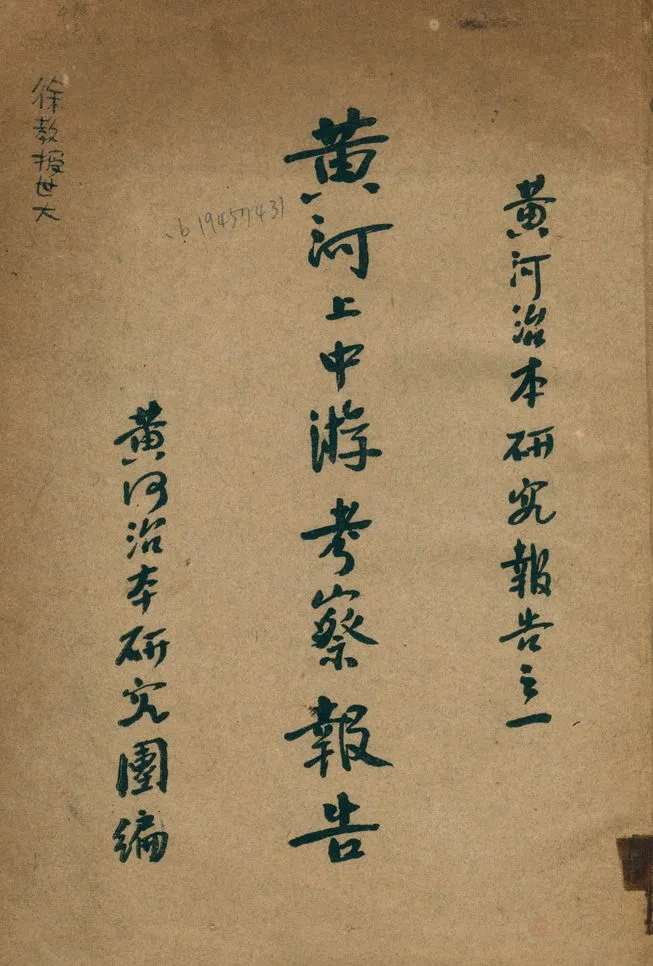 黃河治本研究報告之一
黃河上中游考察報告
黃河治本研究團編
徐教授世大
b19457431